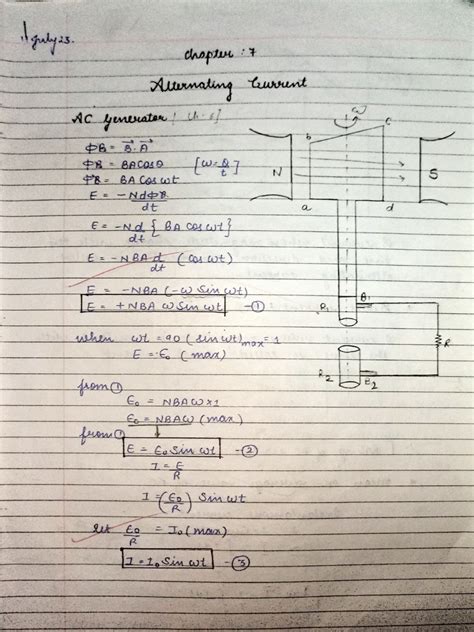 11 July 23.
Chapter : 7
Alternating Current
AC Generator! [Ch-6]
ΦB = B⃗ . A⃗
ΦB = BA Cosθ [ω = θ/t]
ΦB = BA Cos ωt
E = -N dΦB/dt
E = -N d/dt { BA Cos ωt}
E = -NBA d/dt (Cos ωt)
E = -NBA (-ω Sin ωt)
E = +NBA ω Sin ωt -①
when ωt = 90 (sin ωt)max = 1
E = E₀ (max)
from ①
E₀ = NBAω×1
E₀ = NBAω (max)
from ①
E = E₀ Sin ωt -②
I = E/R
I = (E₀/R) Sin ωt
let E₀/R = I₀ (max)
I = I₀ Sin ωt -③
ω
b
c
N
S
a
d
R₁
B₁
R
R₂
B₂